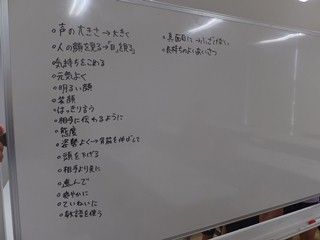 声の大きさ→大きく
人の顔を見る→目を見る
気持ちをこめる
元気よく
明るい顔
笑顔
はっきり言う
相手に伝わるように
態度
姿勢よく→背筋を伸ばして
頭を下げる
相手より先に
進んで
爽やかに
ていねいに
敬語を使う
真面目に→ふざけない
気持ちのよいあいさつ